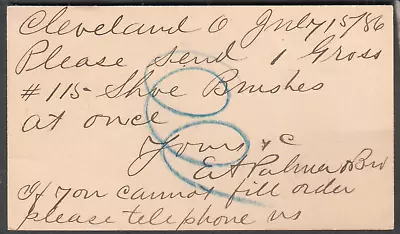 Cleveland O July 15/86
Please send 1 Gross
#115 Shoe Brushes
at once
Yours &c
E A Palmer & Bro
If you cannot fill order
please telephone us